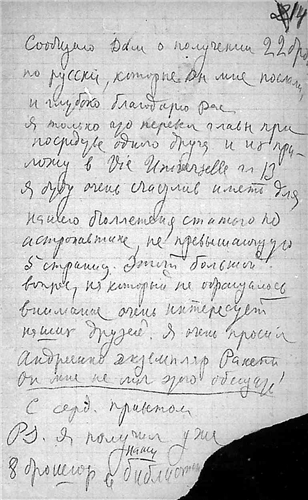 14
Сообщаю Вам о получении 22 бро
по русски, которые Вы мне послали
и глубоко благодарю Вас
Я только что перевел главы при
посредстве одного друга и их при-
ложу в Vie Universelle 12 13
Я буду очень счастлив иметь для
нашего бюллетеня статью по
астронавтике, не превышающую
5 страниц. Этот большой
вопрос, на который не обращалось
внимание очень интересует
наших друзей. Я очень просил
Андреенко экземпляр Ракеты
Он мне не мог этого обещать!
С серд. приветом
PS. Я получил уже
8 брошюр в нашу библиотеку